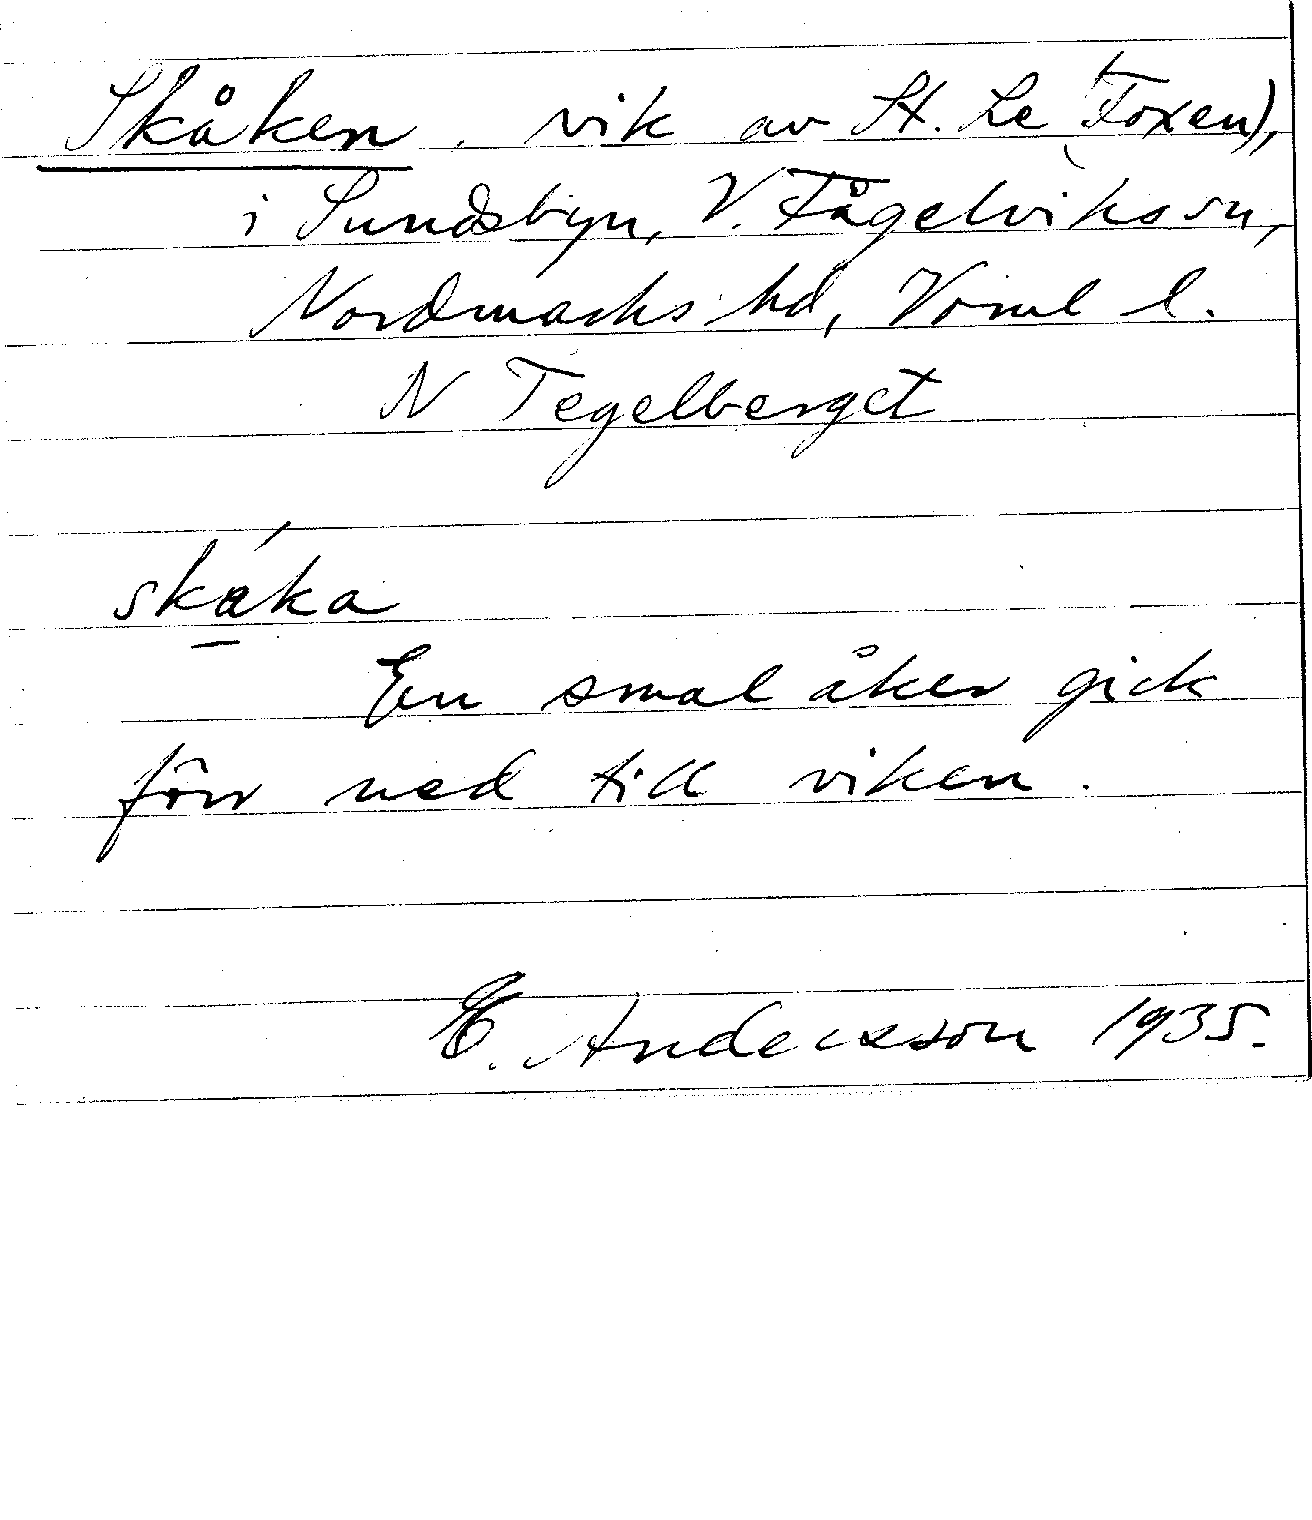 Skåken, vik av St. Le (Foxen),
i Sundsbyn, V. Fågelviks sn,
Nordmarks hd, Värml l.
N Tegelberget
skåka
En smal åker gick
förr ned till viken.
E. Andersson 1935.